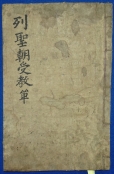 列聖朝受教單